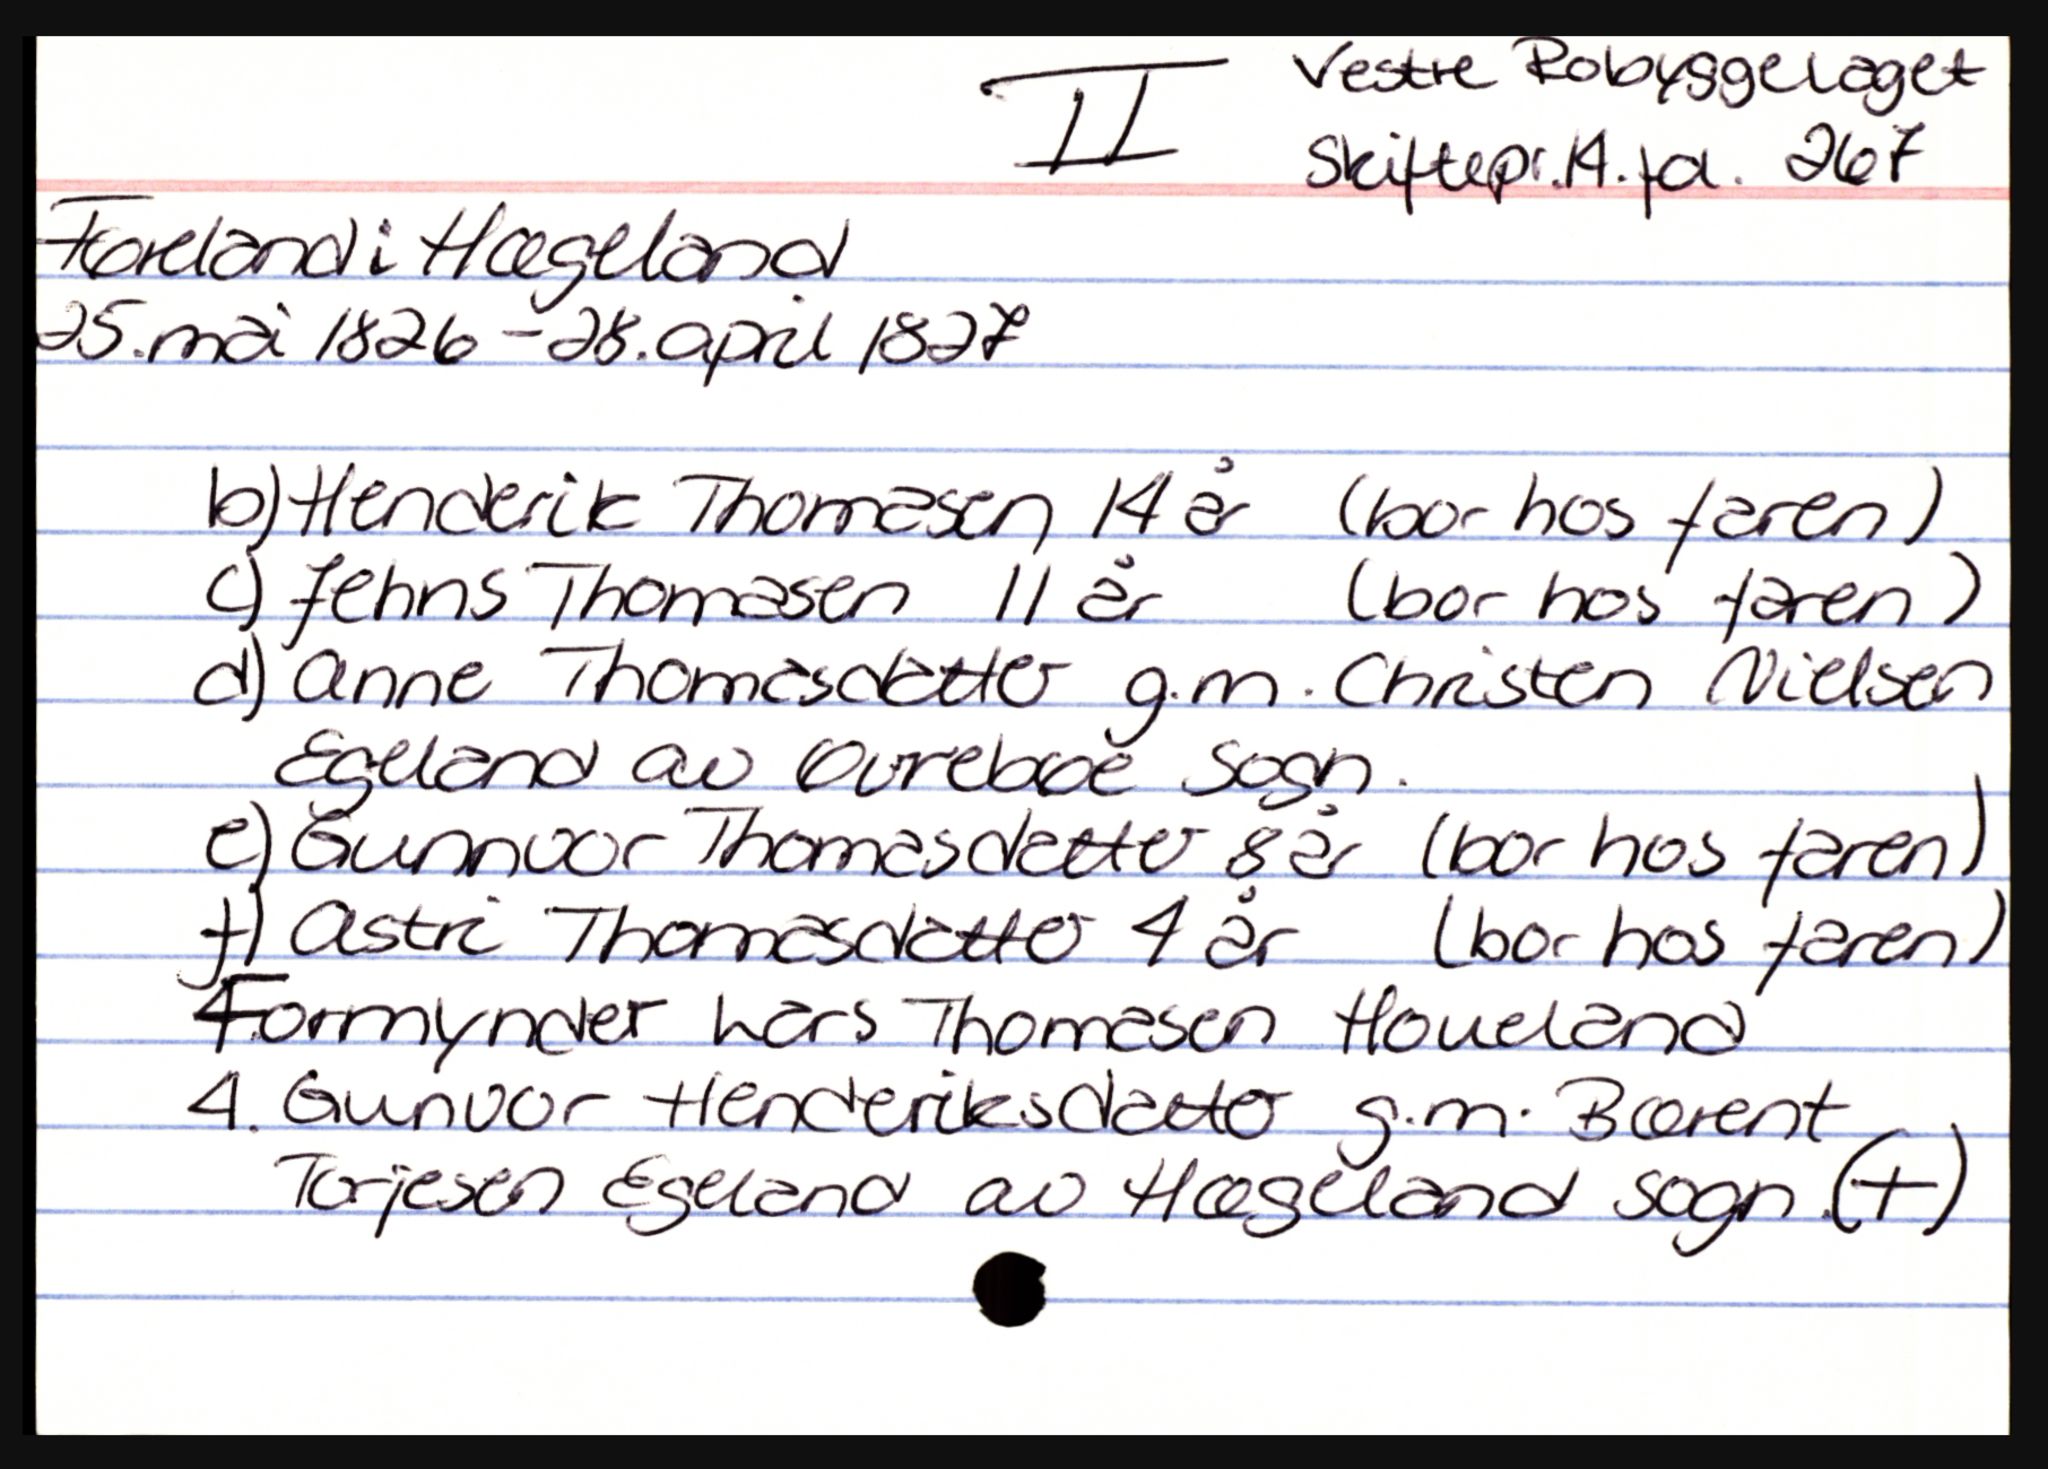 II
Vestre Robyggelaget
Skiftepr. 14. fol. 267
Føreland i Hægeland
25. mai 1826 - 28. april 1827
b) Henderik Thomasen 14 år (bor hos faren)
c) Jehns Thomasen 11 år (bor hos faren)
d) Anne Thomasdatter g.m. Christen Nielsen
Egeland av Øvreboe sogn.
e) Gunnvor Thomasdatter 8 år (bor hos faren)
f) Astri Thomasdatter 4 år (bor hos faren)
Formynder Lars Thomasen Houeland
4. Gunvor Henderiksdatter g.m. Bærent
Torjesen Egeland av Hægeland sogn. (+)